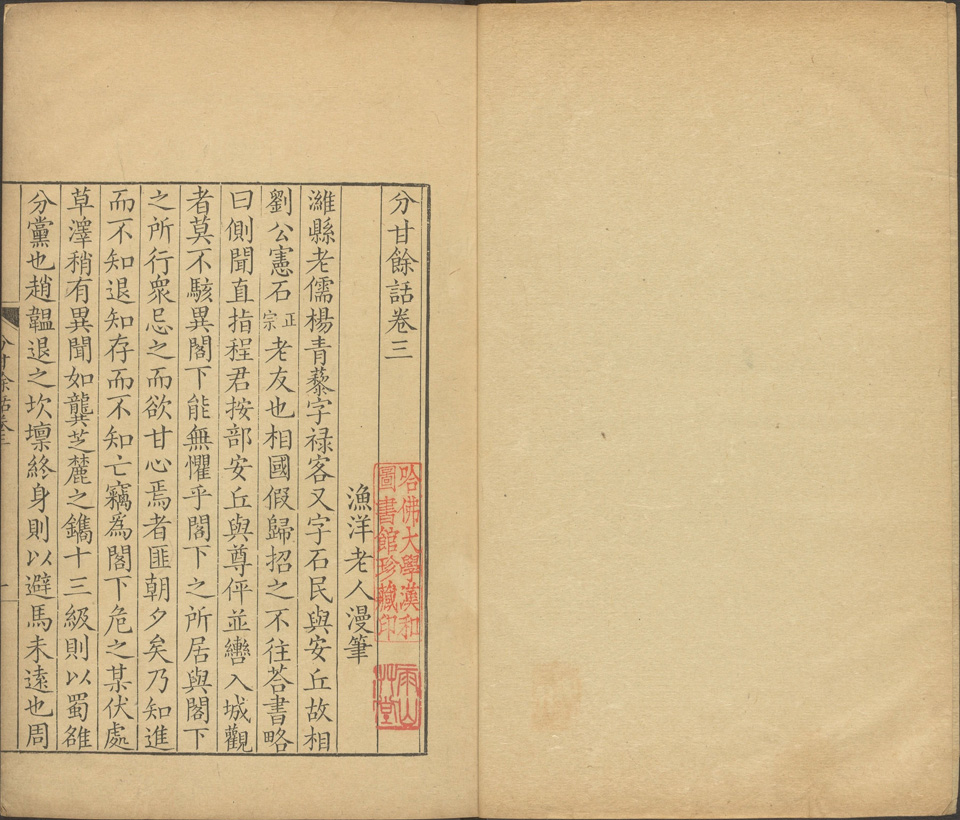 分甘餘話卷三
漁洋老人漫筆
濰縣老儒楊青藜字禄客又字石民與安丘故相
劉公憲石正宗老友也相國假歸招之不往荅書略
曰側聞直指程君按部安丘與尊伻並轡入城觀
者莫不駭異閣下能無懼乎閣下之所居與閣下
之所行衆忌之而欲甘心焉者匪朝夕矣乃知進
而不知退知存而不知亡竊為閣下危之某伏處
草澤稍有異聞如龔芝麓之鐫十三級則以蜀雒
分黨也趙韞退之坎壈終身則以避馬未遠也周
分甘餘話卷三
一
哈佛大學漢和
圖書館珍藏印
雨山
草堂